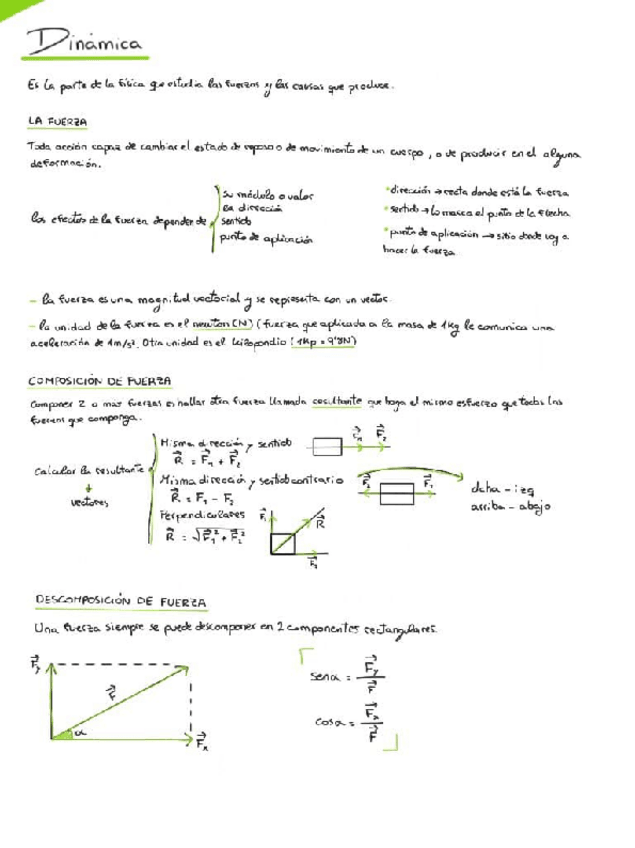 Dinámica
Es la parte de la física que estudia las fuerzas y las causas que produce.
LA FUERZA
Toda acción capaz de cambiar el estado de reposo o de movimiento de un cuerpo, o de producir en el alguna
deformación.
los efectos de la fuerza dependen de
su módulo o valor
su dirección
sentido
punto de aplicación
dirección → recta donde está la fuerza
sentido → lo marca el punto de la flecha
punto de aplicación → sitio donde voy a
hacer la fuerza
- la fuerza es una magnitud vectorial y se representa con un vector.
- la unidad de la fuerza es el newton (N) (fuerza que aplicada a la masa de 1kg le comunica una
aceleración de 1m/s². Otra unidad es el kilopondio (1Kp = 9'8N)
COMPOSICIÓN DE FUERZA
Componer 2 o mas fuerzas es hallar otra fuerza llamada resultante que haga el mismo esfuerzo que todas las
fuerzas que componga.
Calcular la resultante
↓
vectores
Misma dirección y sentido
R⃗ = F⃗₁ + F⃗₂
Misma dirección y sentido contrario
R⃗ = F₁ - F₂
Perpendiculares
R⃗ = √F⃗₁² + F⃗₂²
F⃗₂
F⃗₂ F⃗₁
dcha - izq
arriba - abajo
F⃗₁
R⃗
DESCOMPOSICIÓN DE FUERZA
Una fuerza siempre se puede descomponer en 2 componentes rectangulares.
F⃗y
F⃗
α
F⃗x
senα = F⃗y / F⃗
cosα = F⃗x / F⃗